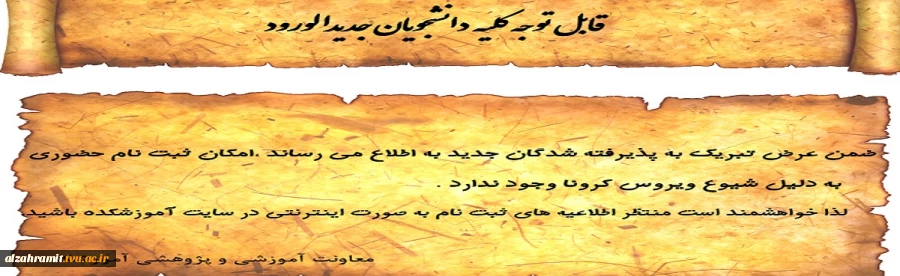 قابل توجه کلیه دانشجویان جدیدالورود
ضمن عرض تبریک به پذیرفته شدگان جدید به اطلاع می رساند ،امکان ثبت نام حضوری
به دلیل شیوع ویروس کرونا وجود ندارد .
لذا خواهشمند است منتظر اطلاعیه های ثبت نام به صورت اینترنتی در سایت آموزشکده باشید.
معاونت آموزشی و پژوهشی
alzahramit.tvu.ac.ir